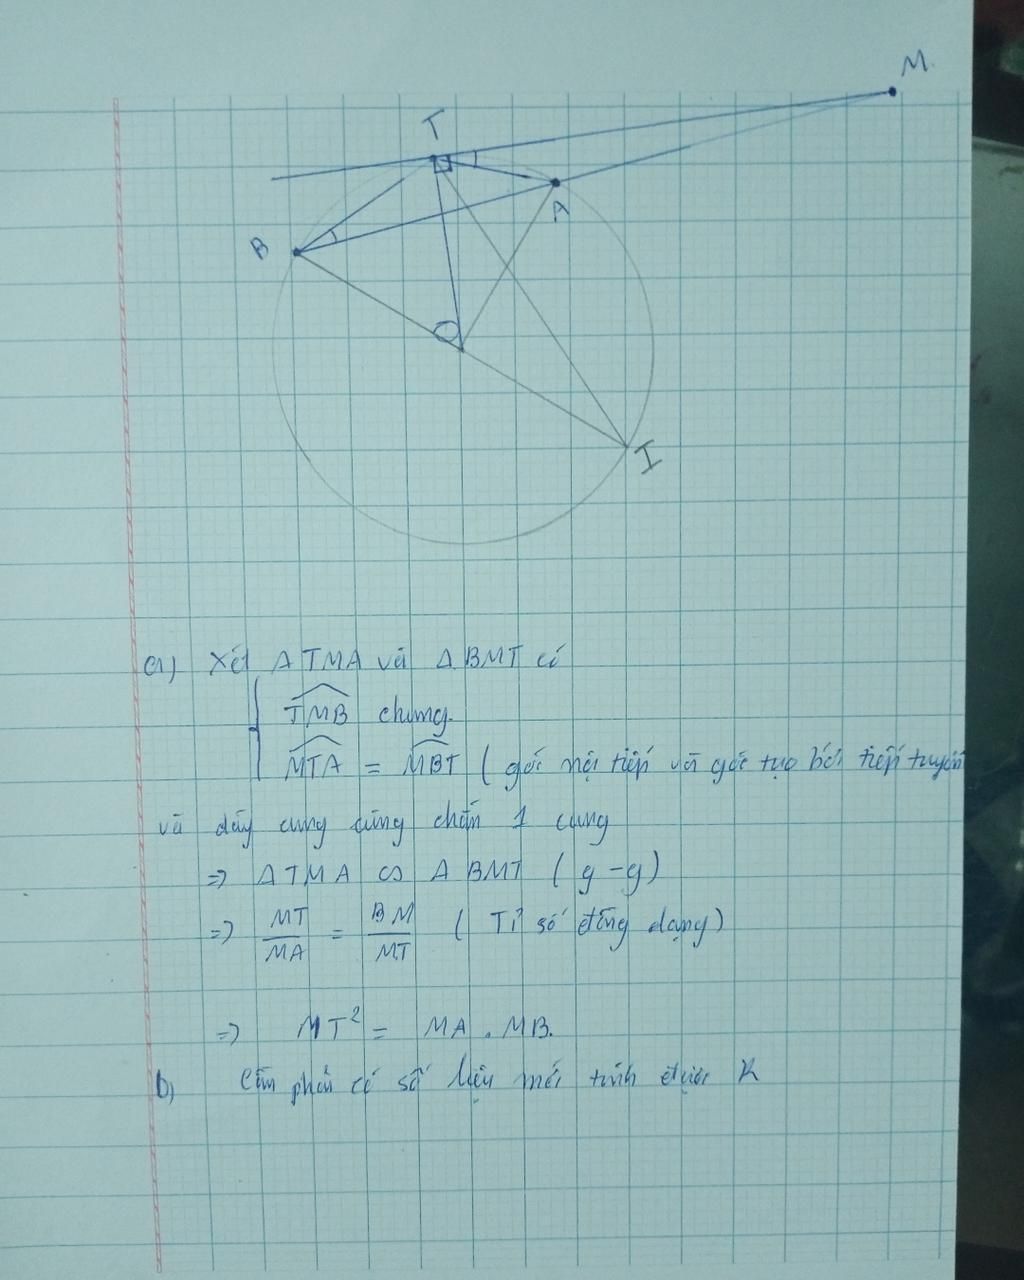 M
T
A
B
O
I
a) Xét Δ TMA và Δ BMT có
TMB chung.
MTA = MBT ( góc nội tiếp và góc tạo bởi tiếp tuyến
và dây cung cùng chắn 1 cung
=> Δ TMA ∽ Δ BMT ( g - g )
=> MT/MA = BM/MT ( Tỉ số đồng dạng )
=> MT² = MA . MB.
b) Cần phải có số liệu mới tính được R